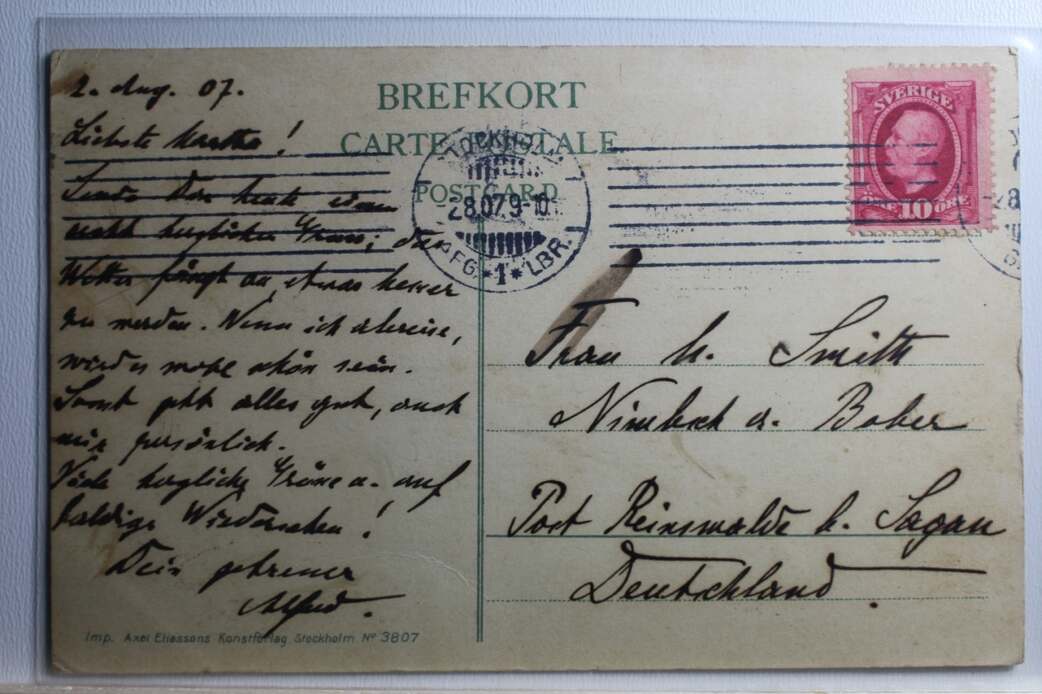 2. Aug. 07.
Liebste Martha!
Sende Dir heute einen
recht herzlichen Gruss; das
Wetter fängt an, etwas besser
zu werden. Wenn ich abreise,
wird es wohl schön sein.
Sonst geht alles gut, auch
mir persönlich.
Viele herzliche Grüsse u. auf
baldiges Wiedersehen!
Dein getreuer
Alfred.
BREFKORT
CARTE POSTALE
POSTCARD
STOCKHOLM
2 8.07 9-10
AFG. *1* LBR.
SVERIGE
10 ÖRE
Frau M. Smith
Nimbsch a. Bober
Post Reinswalde b. Sagan
Deutschland.
Imp. Axel Eliassons Konstförlag Stockholm No 3807